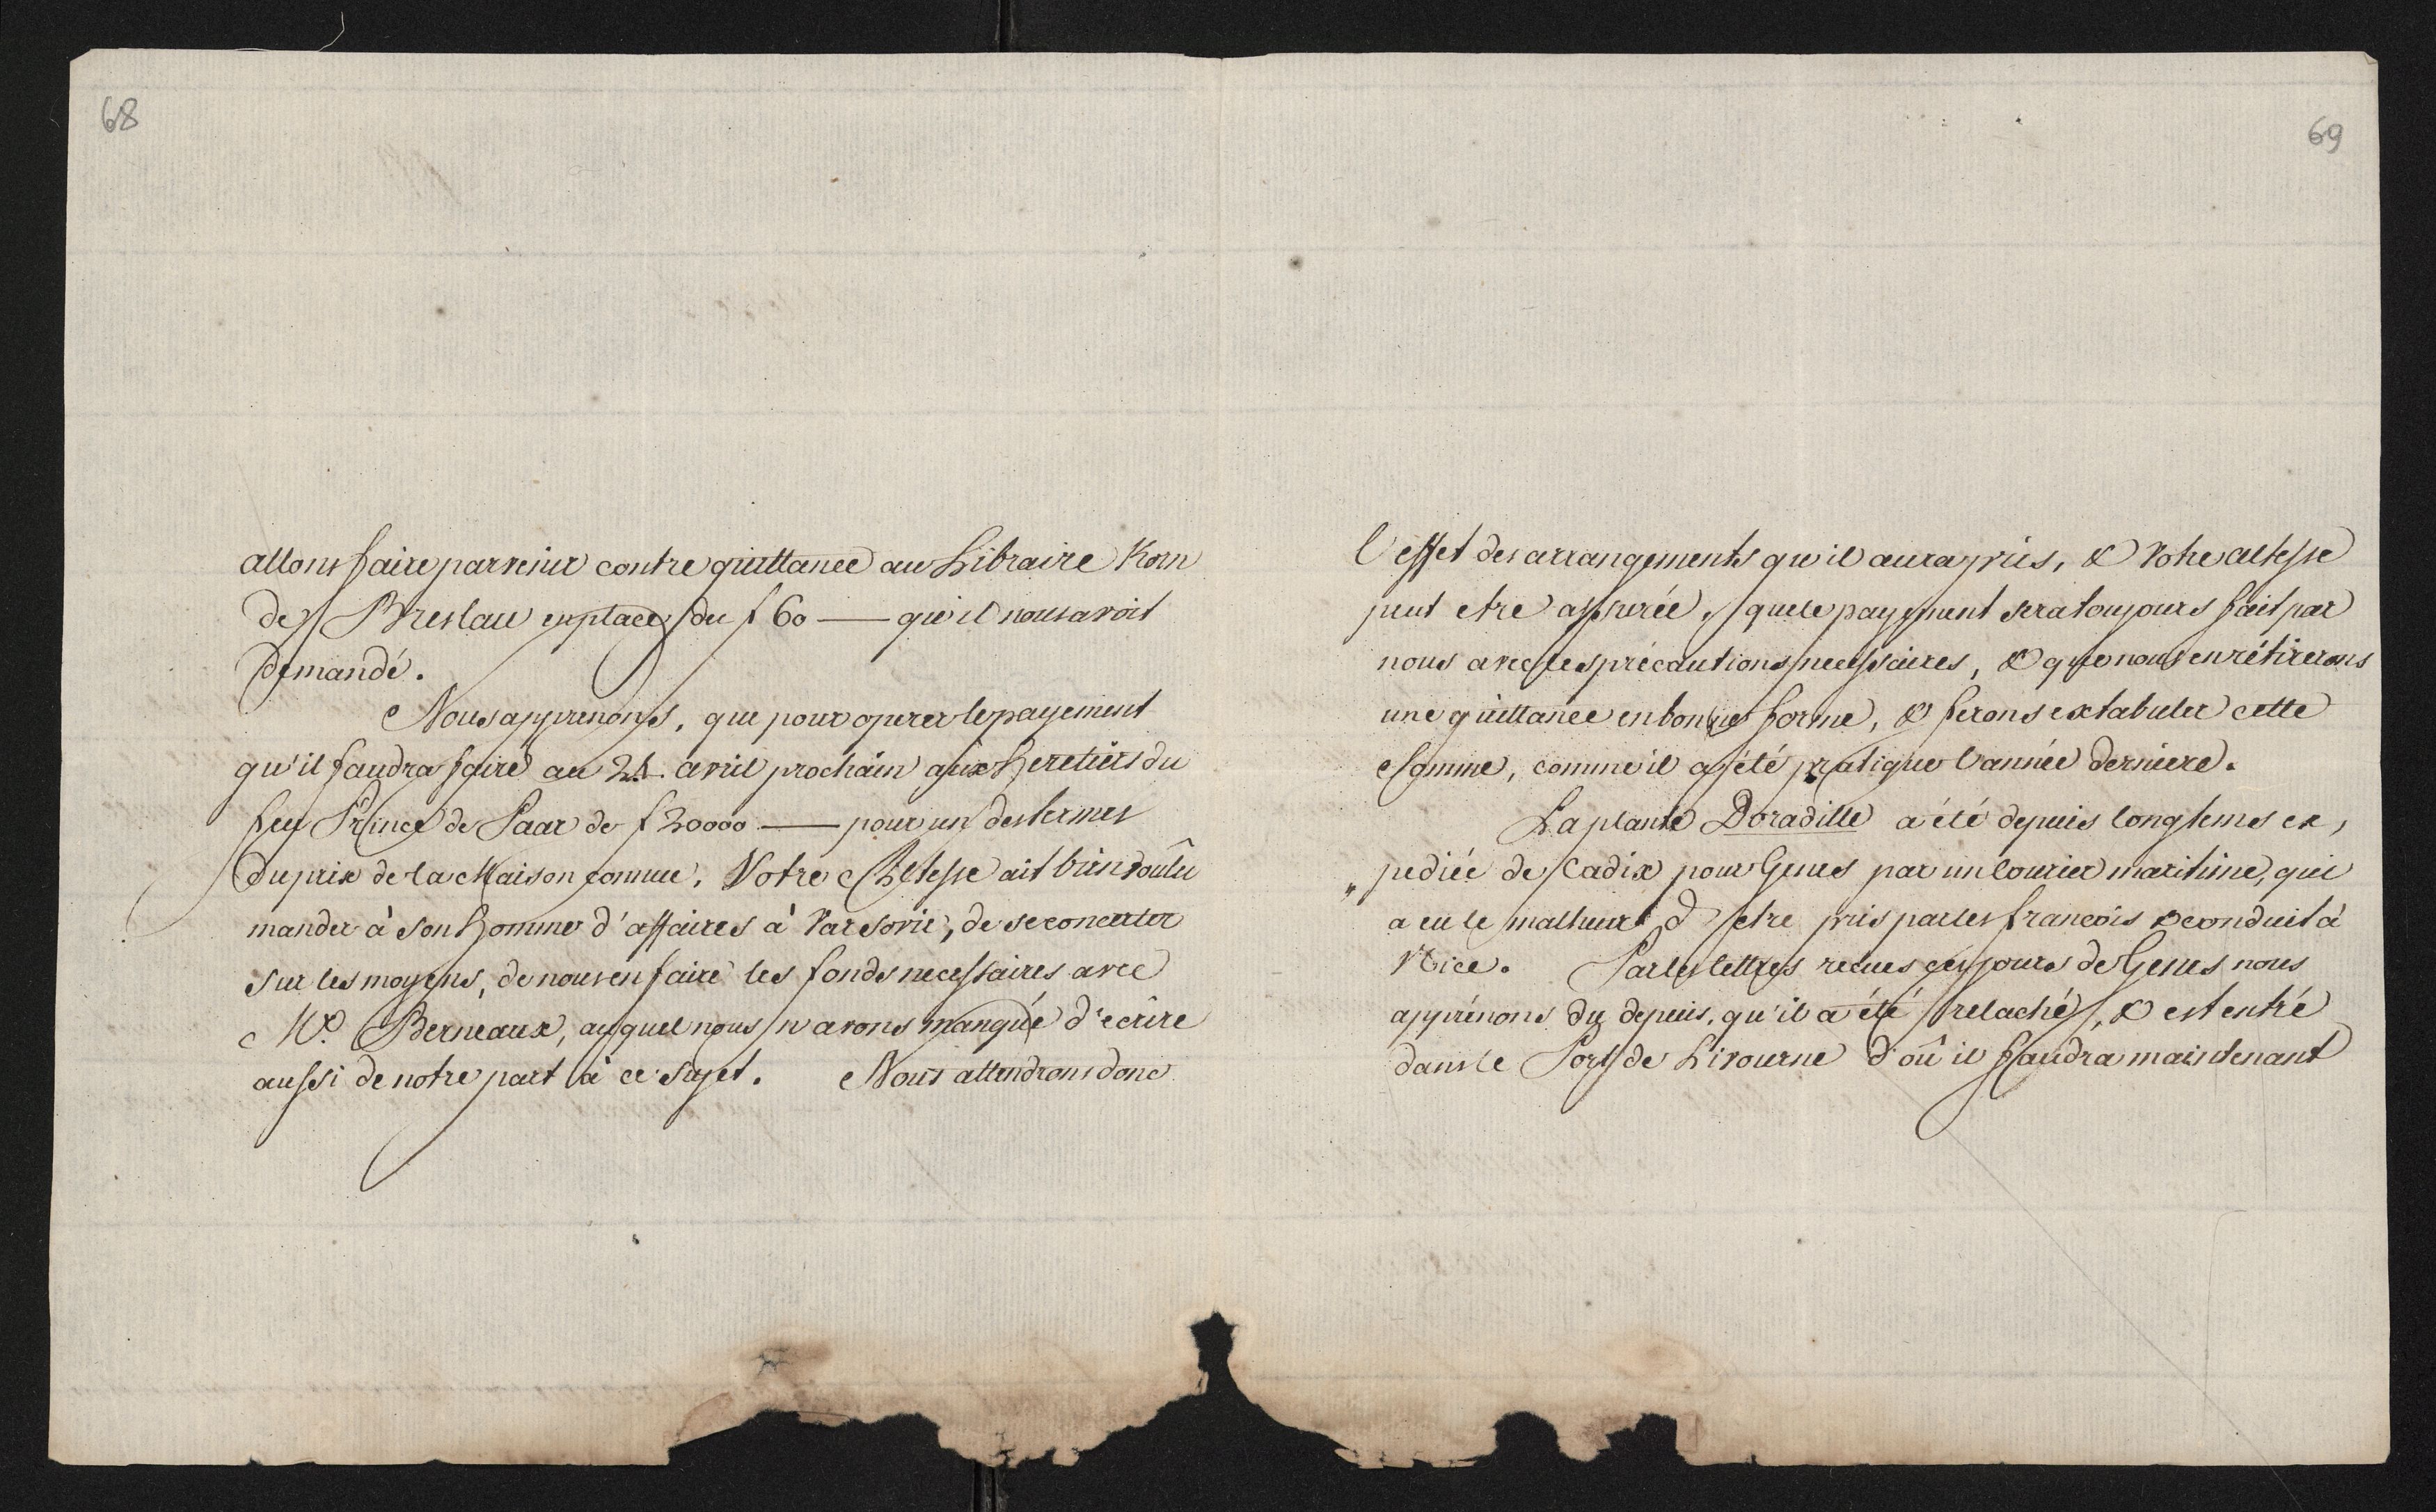 68
allons faire parvenir contre quittance au Libraire Korn
de Breslau en place du f 60 — qu'il nous avoit
demandé.
Nous apprenons, que pour operer le payement
qu'il faudra faire au 24. avril prochàin aux heretiers du
feu Prince de Paar de f 20000 — pour un des termes
du prix de la Maison connue, Votre Altesse ait bien voûlu
mander à son homme d'affaires à Varsovie, de se concerter
sur les moyens, de nous en faire les fonds necessaires avec
Mr. Berneaux, auquel nous n'avons manqué d'ecrire
aussi de notre part à ce sujet. Nous attendrons donc
69
l'effet des arrangements qu'il aura pris, & Votre altesse
peut etre assurée, que le payement sera toujours fait par
nous avec les précautions necessaires, & que nous en rétirerons
une quittance en bonne forme, & ferons extabuler cette
Somme, comme il a été pratique l'année derniere.
La plante Doradille a été depuis longtems ex,
„pediée de Cadix pour Genes par un Courier maritime, qui
a eu le malheur d'etre pris par les francois & conduit à
Nice. Par les lettres recues ces jours de Genes nous
apprénons du depuis, qu'il a été relaché, & est entré
dans le Port de Livourne d'où il faudra maintenant